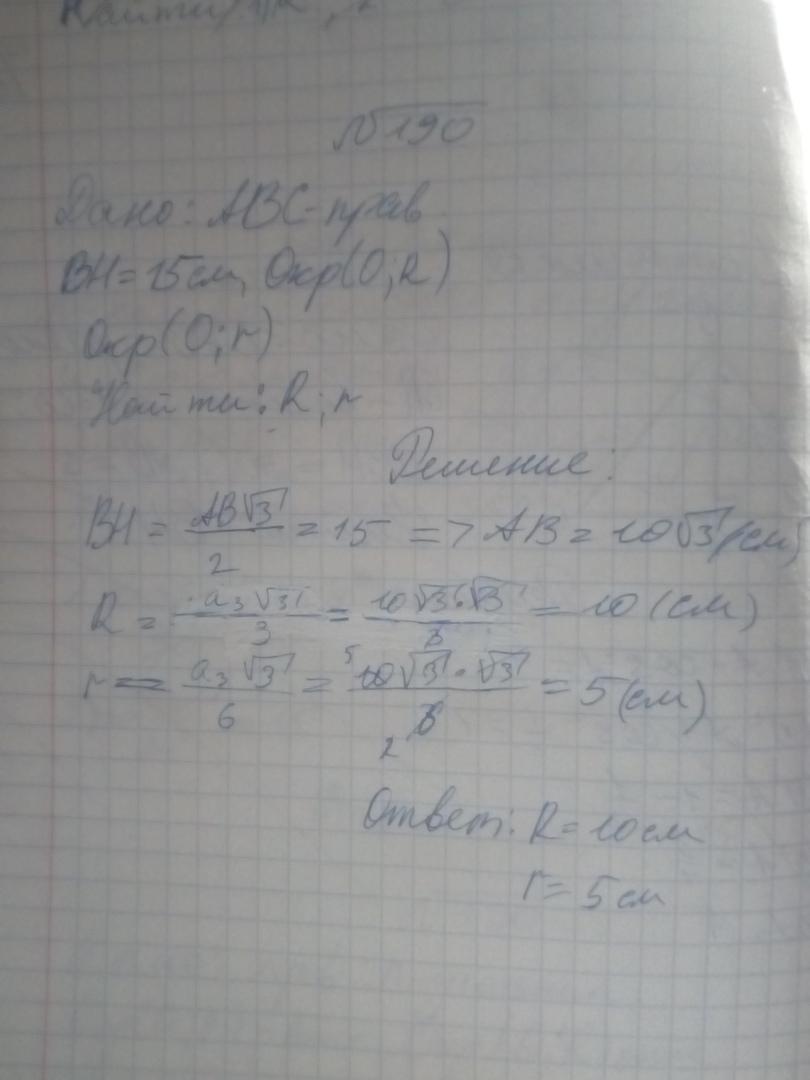 Найти: R, r
№190
Дано: ABC-прав
BH=15см, Окр(O;R)
Окр(O;r)
Найти: R; r
Решение:
BH = AB√3/2 = 15 => AB = 10√3 (см)
R = a₃√3/3 = 10√3·√3/3 = 10 (см)
r = a₃√3/6 = 5 10√3·√3/6 2 = 5 (см)
Ответ: R=10см
r=5см